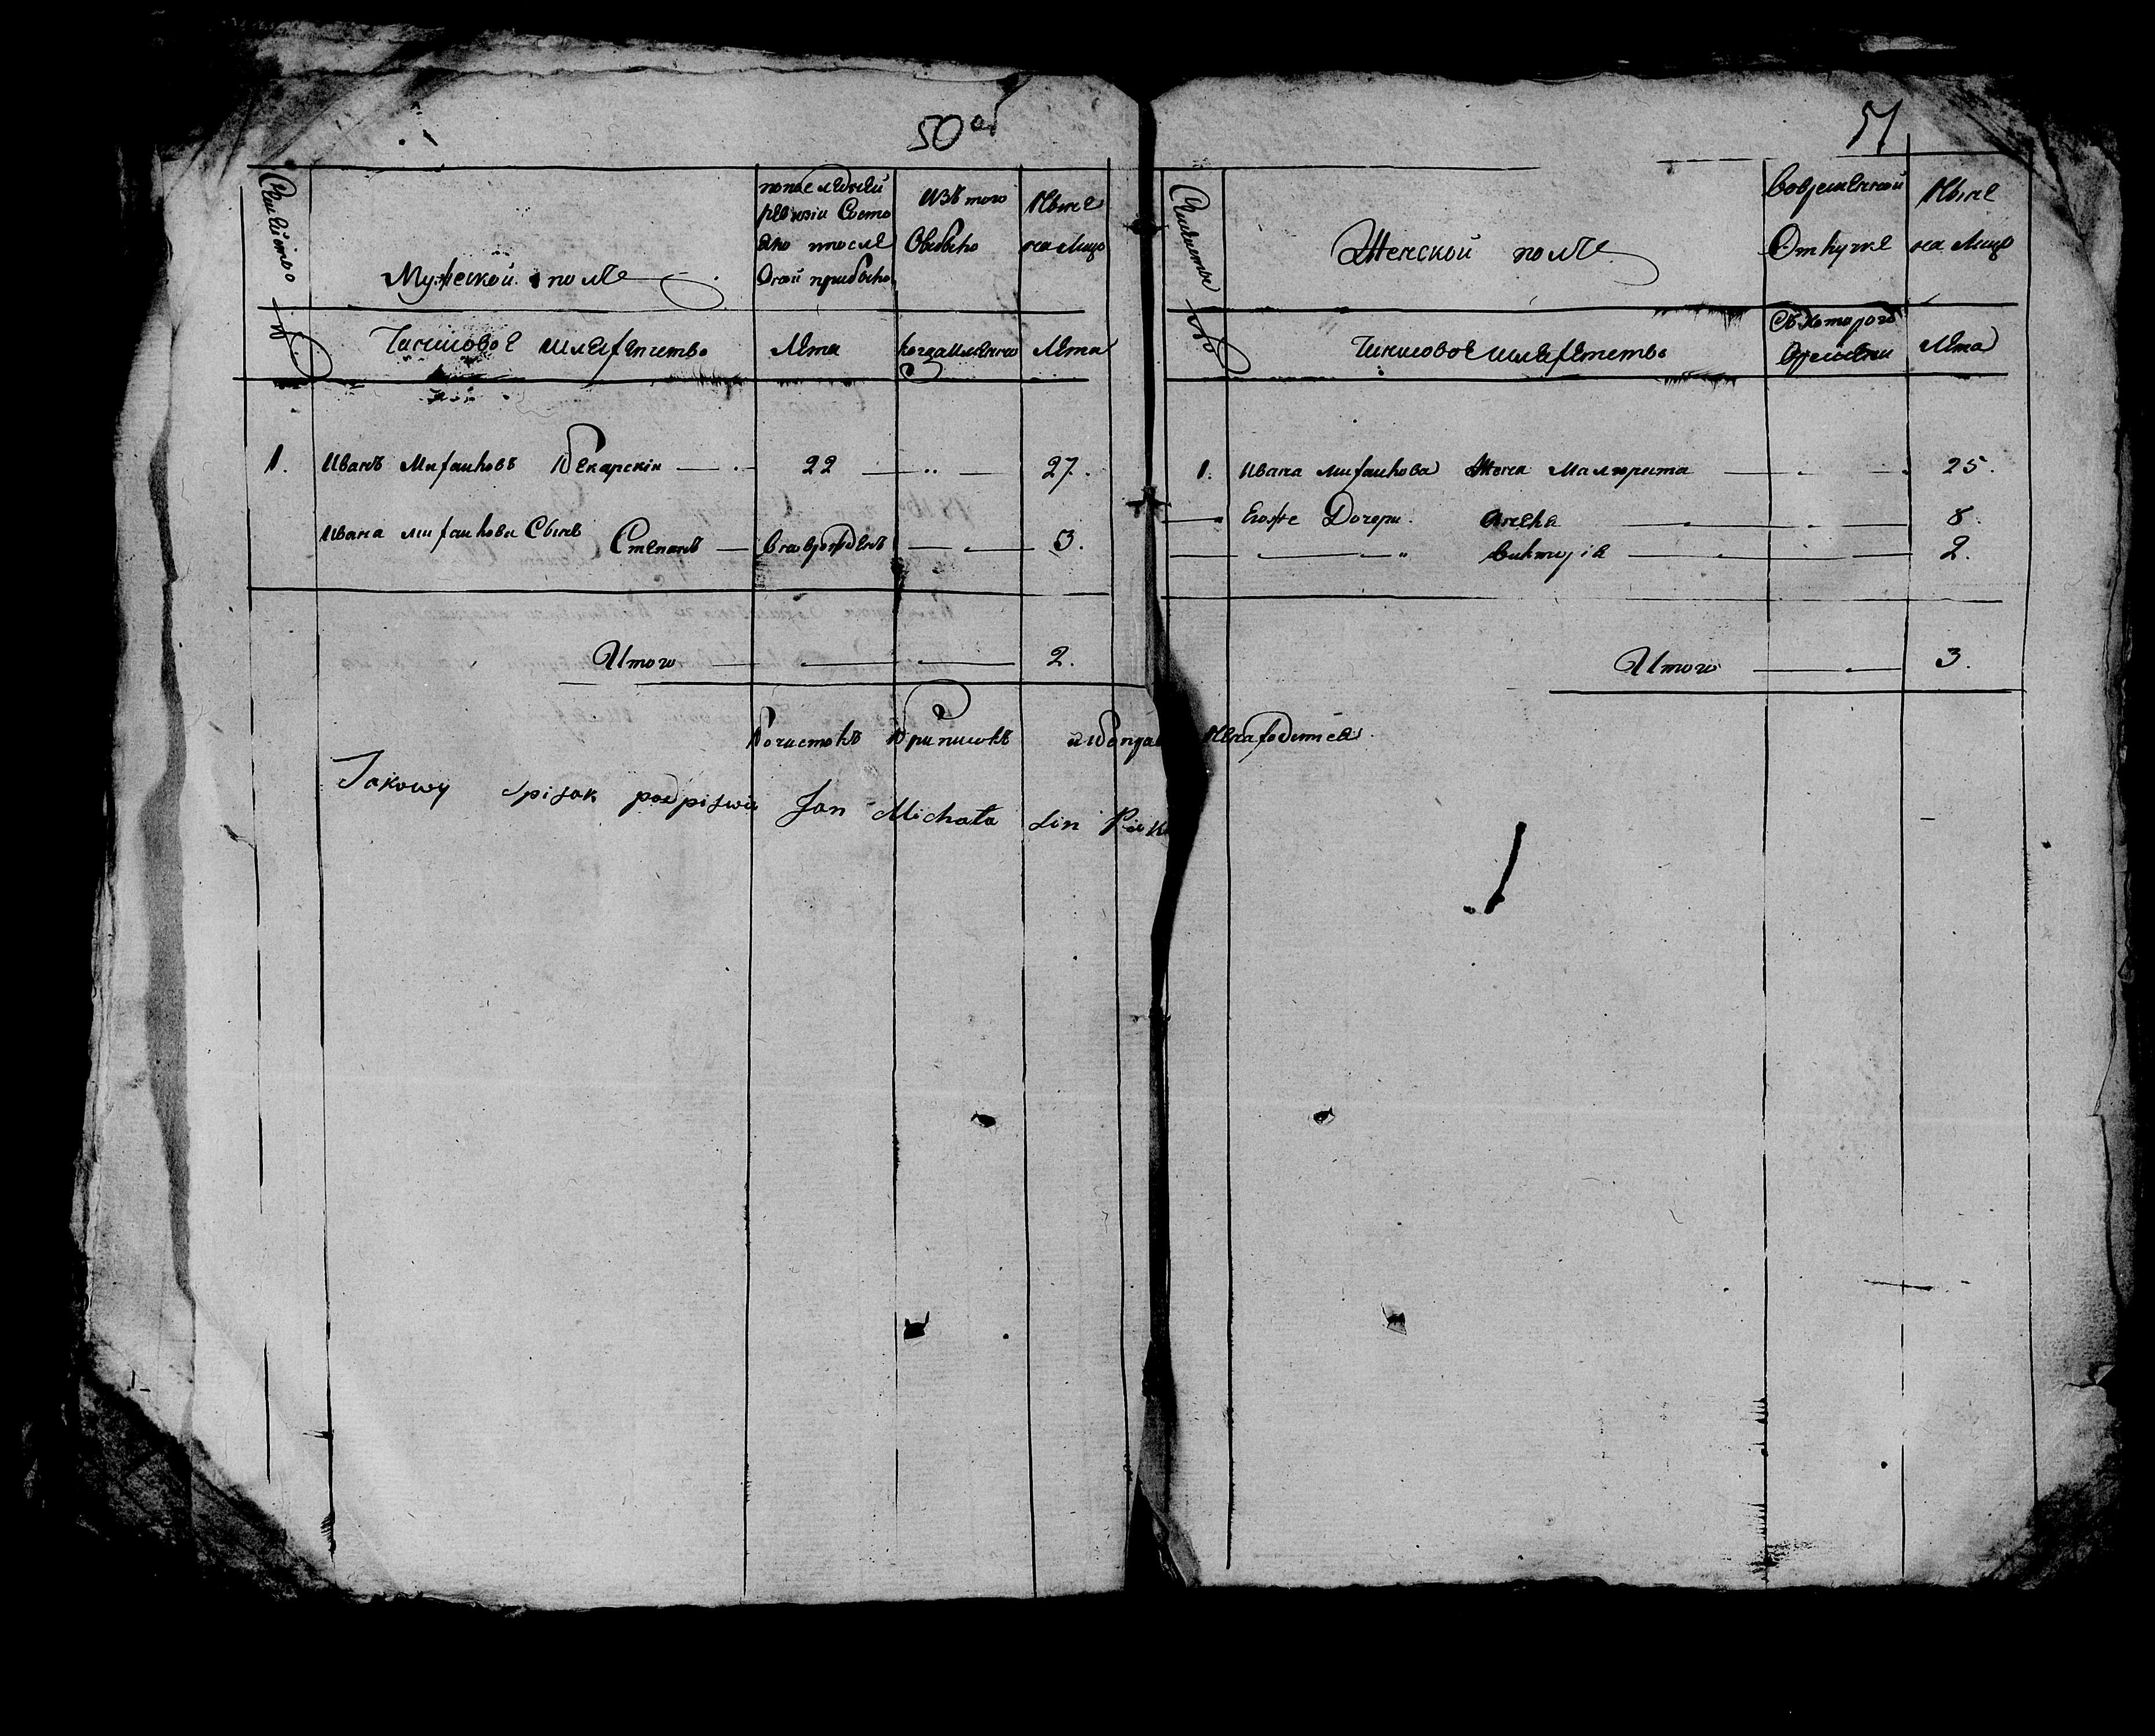 50об
Семейство
Мужеской полъ
по последней
ревизіи Состо
яло и после
Оной прибыло
Изъ того
Выбыло
Ныне
на Лицо
№
Чиншовое шляхетство
Лета
когда именно
Лета
1. Иванъ Михайловъ Пекарскій 22 27.
Ивана Михайлова Сынъ Степанъ Новорожденъ 3.
Итого 2.
Jakowy spisak podpisuię Jan Michała sin
51
Семейство
Женской полъ
Вовременной
Отлучке
Ныне
на Лицо
№
Чиншовое шляхетство
Съ Котораго
Времени
Лета
1. Ивана Михайлова Жена Малгорита 25.
Егоже Дочери. 8.
Викторіа 2.
Итого 3.